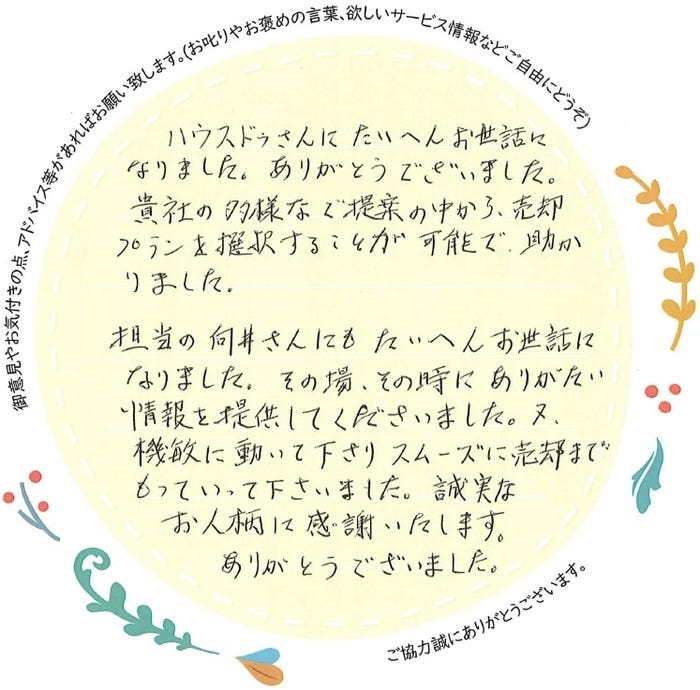 御意見やお気付きの点、アドバイス等があればお願い致します。(お叱りやお褒めの言葉、欲しいサービス情報などご自由にどうぞ)
ハウスドゥさんに たいへんお世話に
なりました。ありがとうございました。
貴社の多様なご提案の中から、売却
プランを選択することが可能で、助か
りました。
担当の向井さんにも たいへんお世話に
なりました。その場、その時に ありがたい
情報を提供してくださいました。又、
機敏に動いて下さり スムーズに売却まで
もっていって下さいました。誠実な
お人柄に感謝いたします。
ありがとうございました。
ご協力誠にありがとうございます。